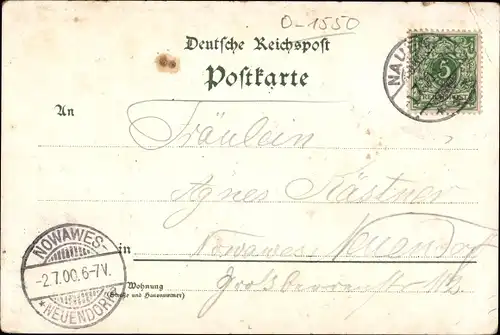 O-1550
Deutsche Reichspost
Postkarte
NAU
5
An
Fräulein
Agnes Kästner
in Nowawes-Neuendorf
Wohnung
(Straße und Hausnummer)
NOWAWES-
-2.7.00.6-7V.
*NEUENDORF